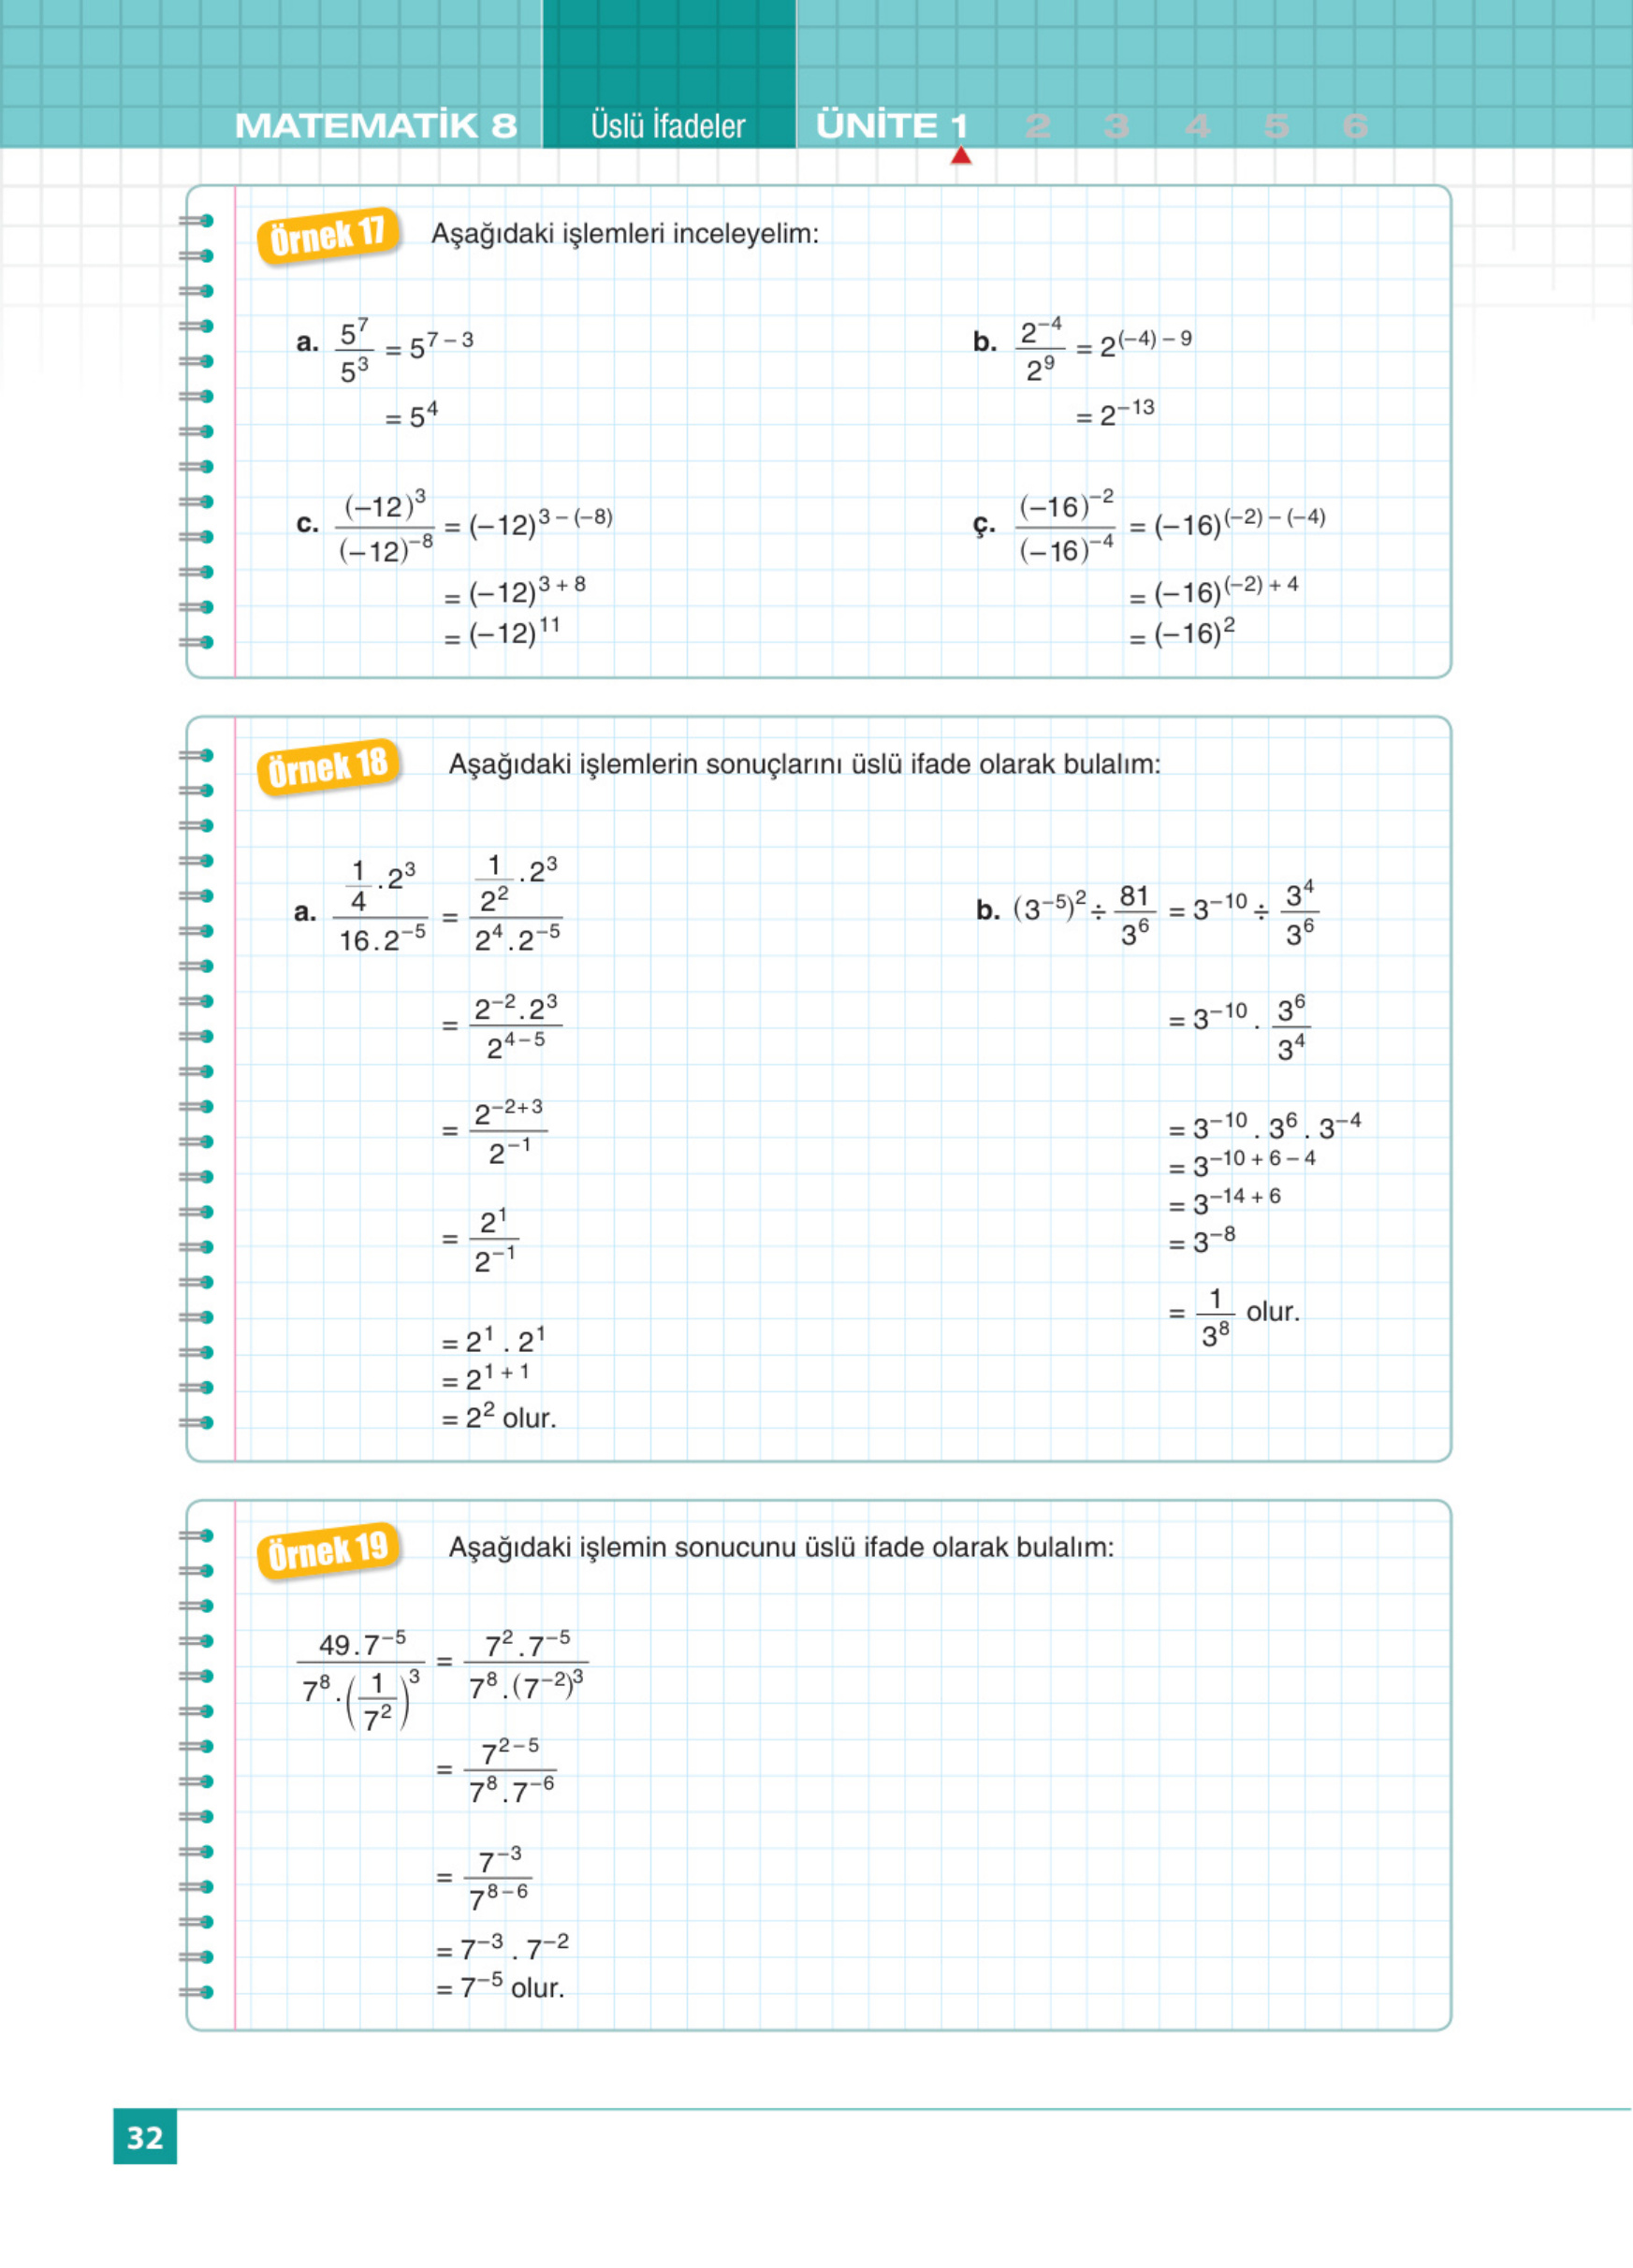 MATEMATİK 8 Üslü İfadeler ÜNİTE 1 2 3 4 5 6
Örnek 17 Aşağıdaki işlemleri inceleyelim:
a. 5⁷/5³ = 5⁷⁻³
= 5⁴
b. 2⁻⁴/2⁹ = 2⁽⁻⁴⁾⁻⁹
= 2⁻¹³
c. (–12)³/(–12)⁻⁸ = (–12)³⁻⁽⁻⁸⁾
= (–12)³⁺⁸
= (–12)¹¹
ç. (–16)⁻²/(–16)⁻⁴ = (–16)⁽⁻²⁾⁻⁽⁻⁴⁾
= (–16)⁽⁻²⁾⁺⁴
= (–16)²
Örnek 18 Aşağıdaki işlemlerin sonuçlarını üslü ifade olarak bulalım:
a. (1/4 . 2³)/(16 . 2⁻⁵) = (1/2² . 2³)/(2⁴ . 2⁻⁵)
= (2⁻² . 2³)/2⁴⁻⁵
= 2⁻²⁺³/2⁻¹
= 2¹/2⁻¹
= 2¹ . 2¹
= 2¹⁺¹
= 2² olur.
b. (3⁻⁵)² ÷ 81/3⁶ = 3⁻¹⁰ ÷ 3⁴/3⁶
= 3⁻¹⁰ . 3⁶/3⁴
= 3⁻¹⁰ . 3⁶ . 3⁻⁴
= 3⁻¹⁰⁺⁶⁻⁴
= 3⁻¹⁴⁺⁶
= 3⁻⁸
= 1/3⁸ olur.
Örnek 19 Aşağıdaki işlemin sonucunu üslü ifade olarak bulalım:
(49 . 7⁻⁵)/(7⁸ . (1/7²)³) = (7² . 7⁻⁵)/(7⁸ . (7⁻²)³)
= 7²⁻⁵/(7⁸ . 7⁻⁶)
= 7⁻³/7⁸⁻⁶
= 7⁻³ . 7⁻²
= 7⁻⁵ olur.
32